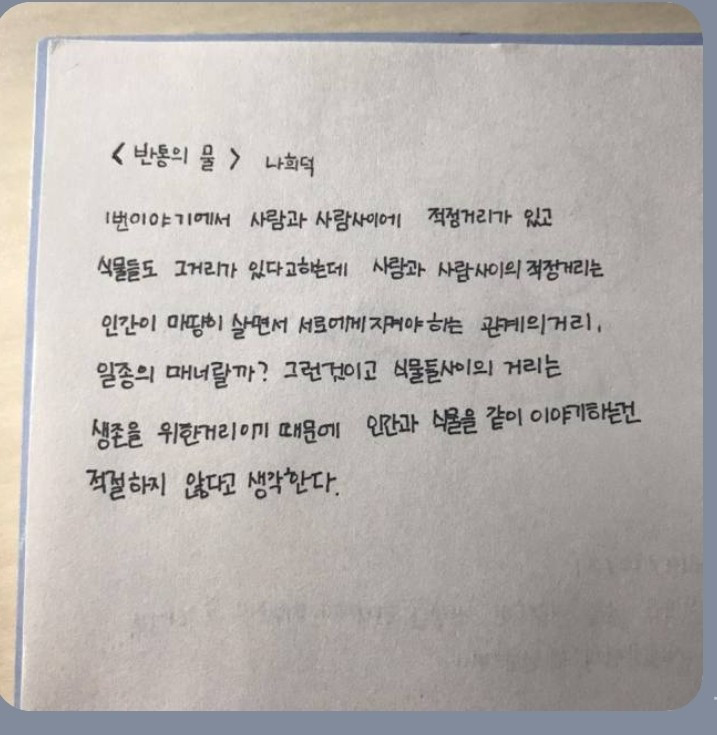 < 반통의 물 > 나희덕
1번이야기에서 사람과 사람사이에 적정거리가 있고
식물들도 그거리가 있다고하는데 사람과 사람사이의 적정거리는
인간이 마땅히 살면서 서로에게지켜야하는 관계의거리,
일종의 매너랄까? 그런것이고 식물들사이의 거리는
생존을 위한거리이기 때문에 인간과 식물을 같이 이야기하는건
적절하지 않다고 생각한다.